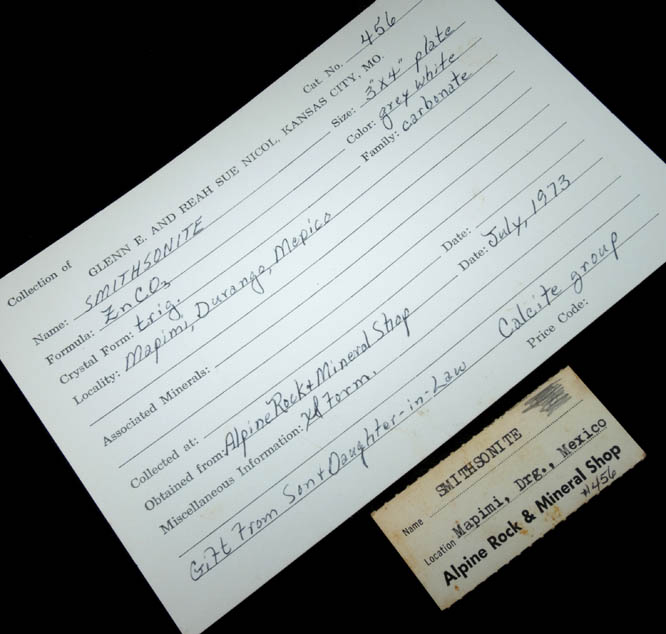 Cat. No. 456
Collection of GLENN E. AND REAH SUE NICOL, KANSAS CITY, MO.
Name: SMITHSONITE Size: 3"x4" plate
Formula: ZnCO3 Color: grey white
Crystal Form: trig. Family: carbonate
Locality: Mapimi, Durango, Mexico
Associated Minerals:
Collected at: Date:
Obtained from: Alpine Rock + Mineral Shop Date: July, 1973
Miscellaneous Information: xl form.
Gift From Son + Daughter-in-Law Calcite group
Price Code:
Name SMITHSONITE
Location Mapimi, Drg., Mexico
Alpine Rock & Mineral Shop
#456